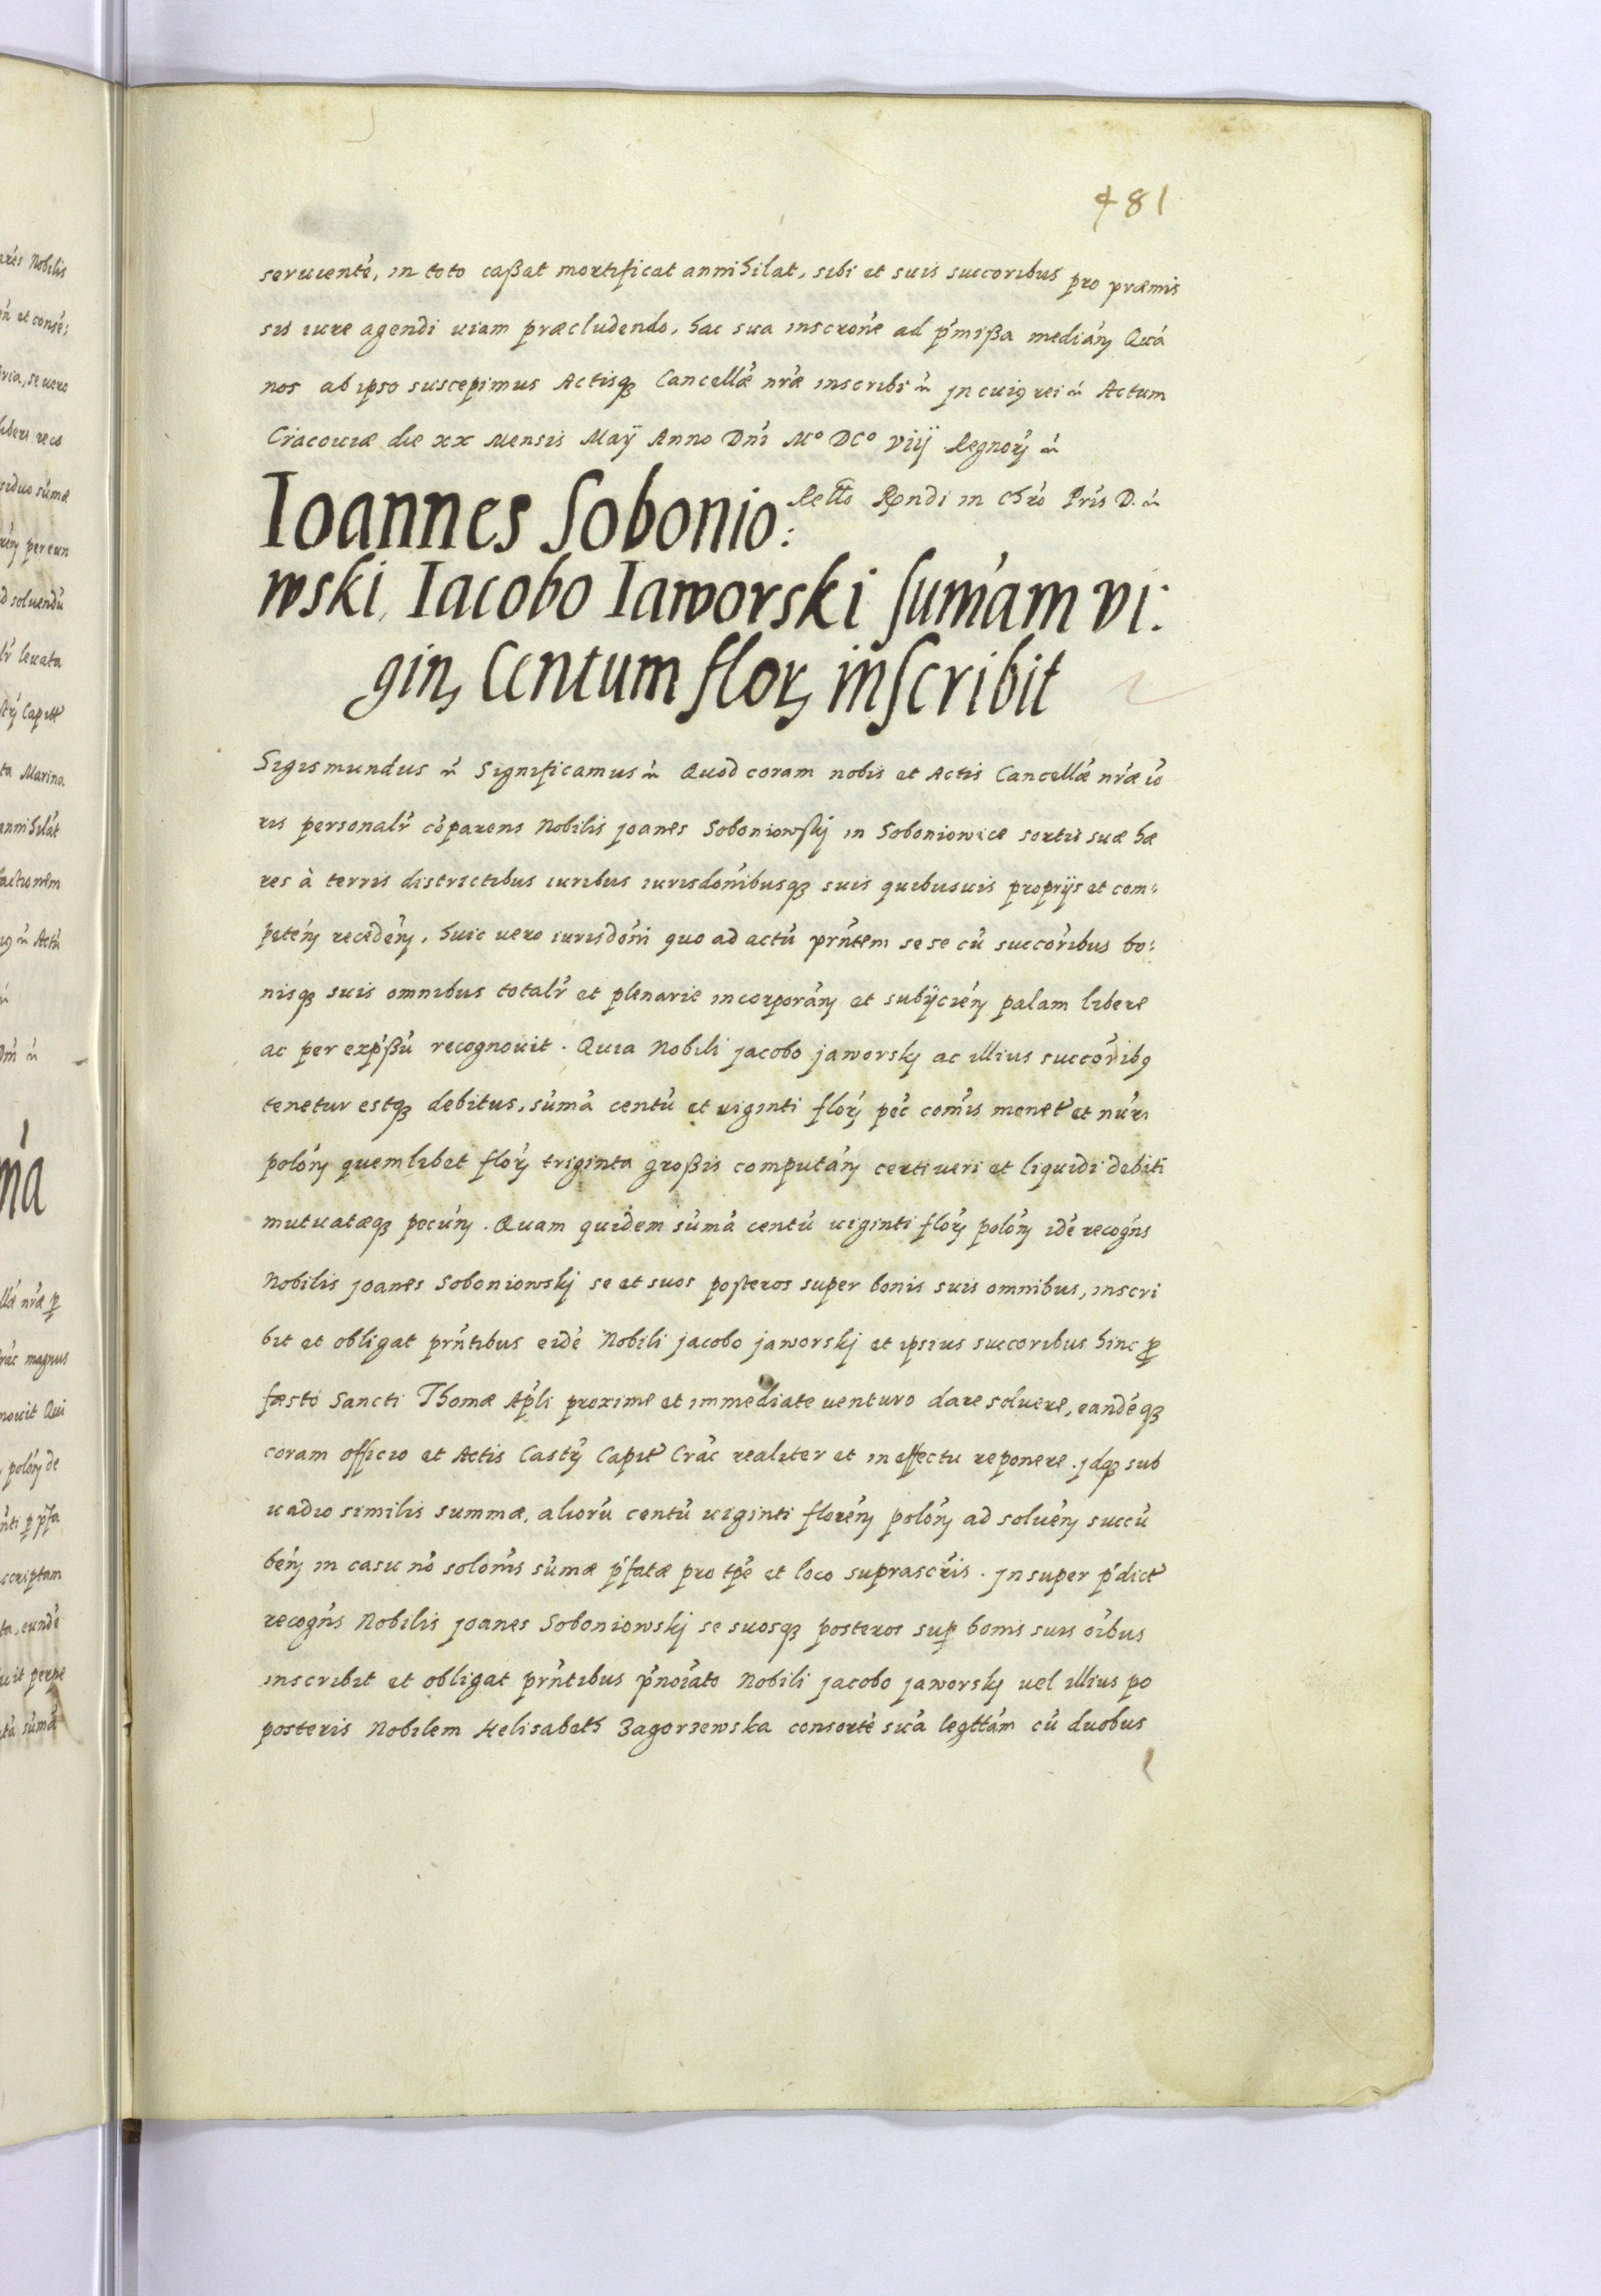 481
seruienté, in toto caßat mortificat annihilat, sibi et suis succoribus pro præmis
sis iure agendi uiam præcludendo, hac sua inscrone ad p'mißa median Quá
nos ab ipso suscepimus Actisq3 Cancellæ nræ inscribi ~ Jn cui9 rei ~ Actum
Cracouiæ die xx Mensis Maÿ Anno Dni Mo DCo viij Regnor ~
Retto Rendi in Chro Pris D. ~
Ioannes Sobonio:
wski, Iacobo Iaworski sum̃am vi:
gin, Centum flor, inscribit
Sigismundus ~ Significamus ~ Quod coram nobis et Actis Cancellæ nræ io
ris personalr cõparens Nobilis Joanes Soboniowskj in Soboniowice sortis suæ hæ
res à terris districtibus iuribus iurisdonibusq3 suis quibusuis proprijs et com-
peten recedén, huic uero iurisdoni quo ad actũ prñtem se se cũ succoribus bo:
nisq3 suis omnibus totalr et plenarie incorporán et subÿcién palam libere
ac per exp'ßũ recognouit. Quia Nobili Jacobo Jaworskj ac illius succorib9
tenetur estq3 debitus, sũmã centũ et uiginti flor pec comis monet et nũri
polon quemlibet flor triginta großis compután certi ueri et liquidi debiti
mutuatæq3 pecún. Quam quidem sũmã centũ uiginti flor polon idẽ recogns
Nobilis Joanes Soboniowskj se et suos posteros super bonis suis omnibus, inscri
bit et obligat prñtibus eidẽ Nobili Jacobo Jaworskj et ipsius succoribus hinc p
fæsto Sancti Thomæ Apli proxime et immediate uenturo dare soluere, eandẽq3
coram officio et Actis Castr Capit Crac realiter et in effectu reponere. Jdq3 sub
uadio similis summæ, aliorũ centũ uiginti floren polon ad soluén succũ
bén in casu nõ solonis sũmæ p'fatæ pro tpe et loco suprascris. Jnsuper p'dict
recogns Nobilis Joanes Soboniowskj se suosq3 posteros sup bonis suis oibus
inscribit et obligat prñtibus p'noiato Nobili Jacobo Jaworskj uel illius po
posteris Nobilem Helisabeth Zagorzewska consortẽ suã legttám cũ duobus